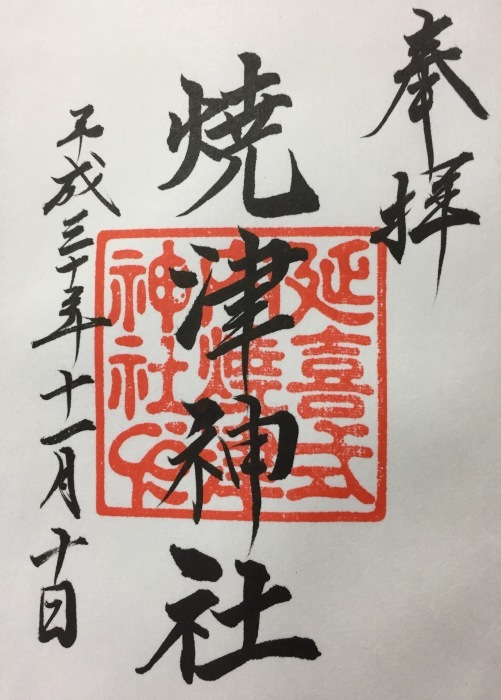 奉拝
延喜式
焼津神社
神社印
平成三十年十一月十日